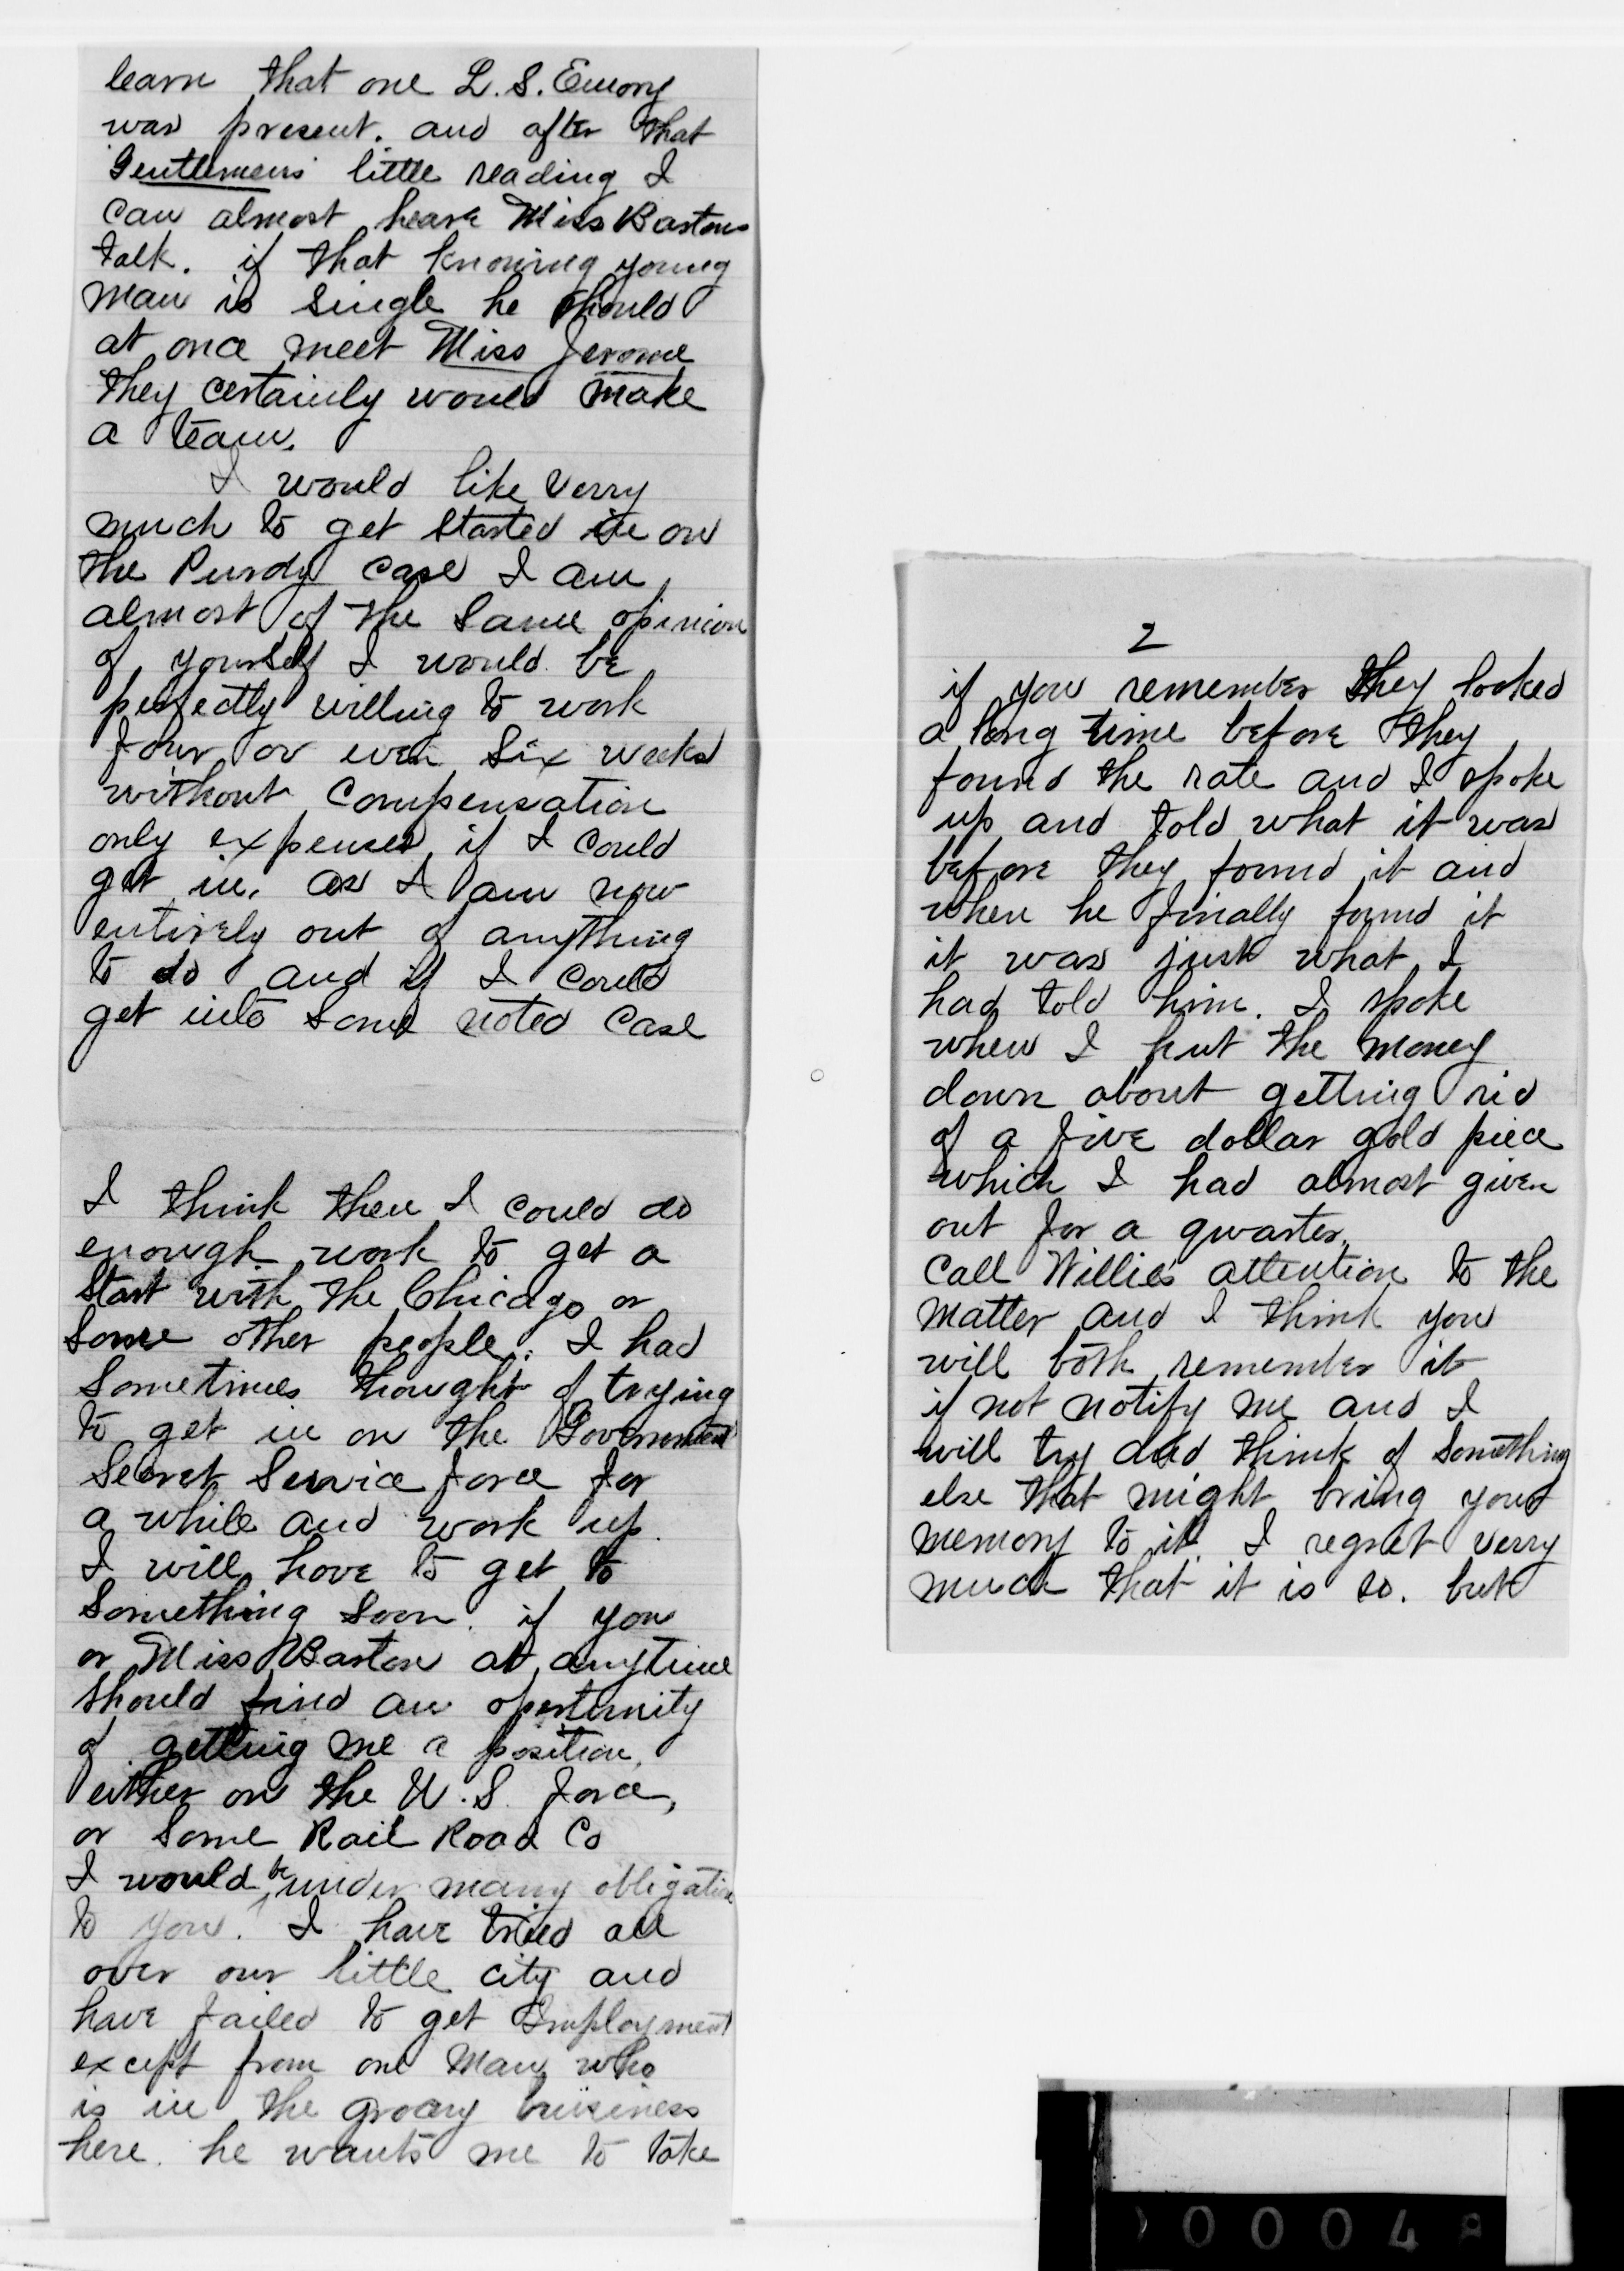 learn that one L. S. Emory
was present. and after that
Gentlemens little reading I
can almost heare Miss Bartons
talk. if that knowing young
man is single he should
at once meet Miss Jerome
they certainly would make
a team.
I would like verry
much to get started in on
the Purdy case I am
almost of the same opinion
of yourself I would be
perfectly willing to work
four or even six weeks
without compensation
only expenses, if I could
get in. as I am now
entirely out of anything
to do and if I could
get into some noted case
I think then I could do
enough work to get a
start with the Chicago or
some other people. I had
sometimes thought of trying
to get in on the Government
Secret Service force for
a while and work up.
I will have to get to
something soon. if you
or Miss Barton at anytime
should find an opertunity
of getting me a position,
either on the U.S. force,
or some Rail Road Co
I would be under many obligation
to you. I have tried all
over our little city and
have failed to get Employment
except from one man who
is in the grocery buisiness
here. he wants me to take
2
if you remember they looked
a long time before they
found the rate and I spoke
up and told what it was
before they found it and
when he finally found it
it was just what I
had told him. I spoke
when I put the money
down about getting rid
of a five dollar gold piece
which I had almost given
out for a quarter.
Call Willies attention to the
matter and I think you
will both remember it
if not notify me and I
will try and think of something
else that might bring your
memory to it. I regret verry
much that it is so. but
0004